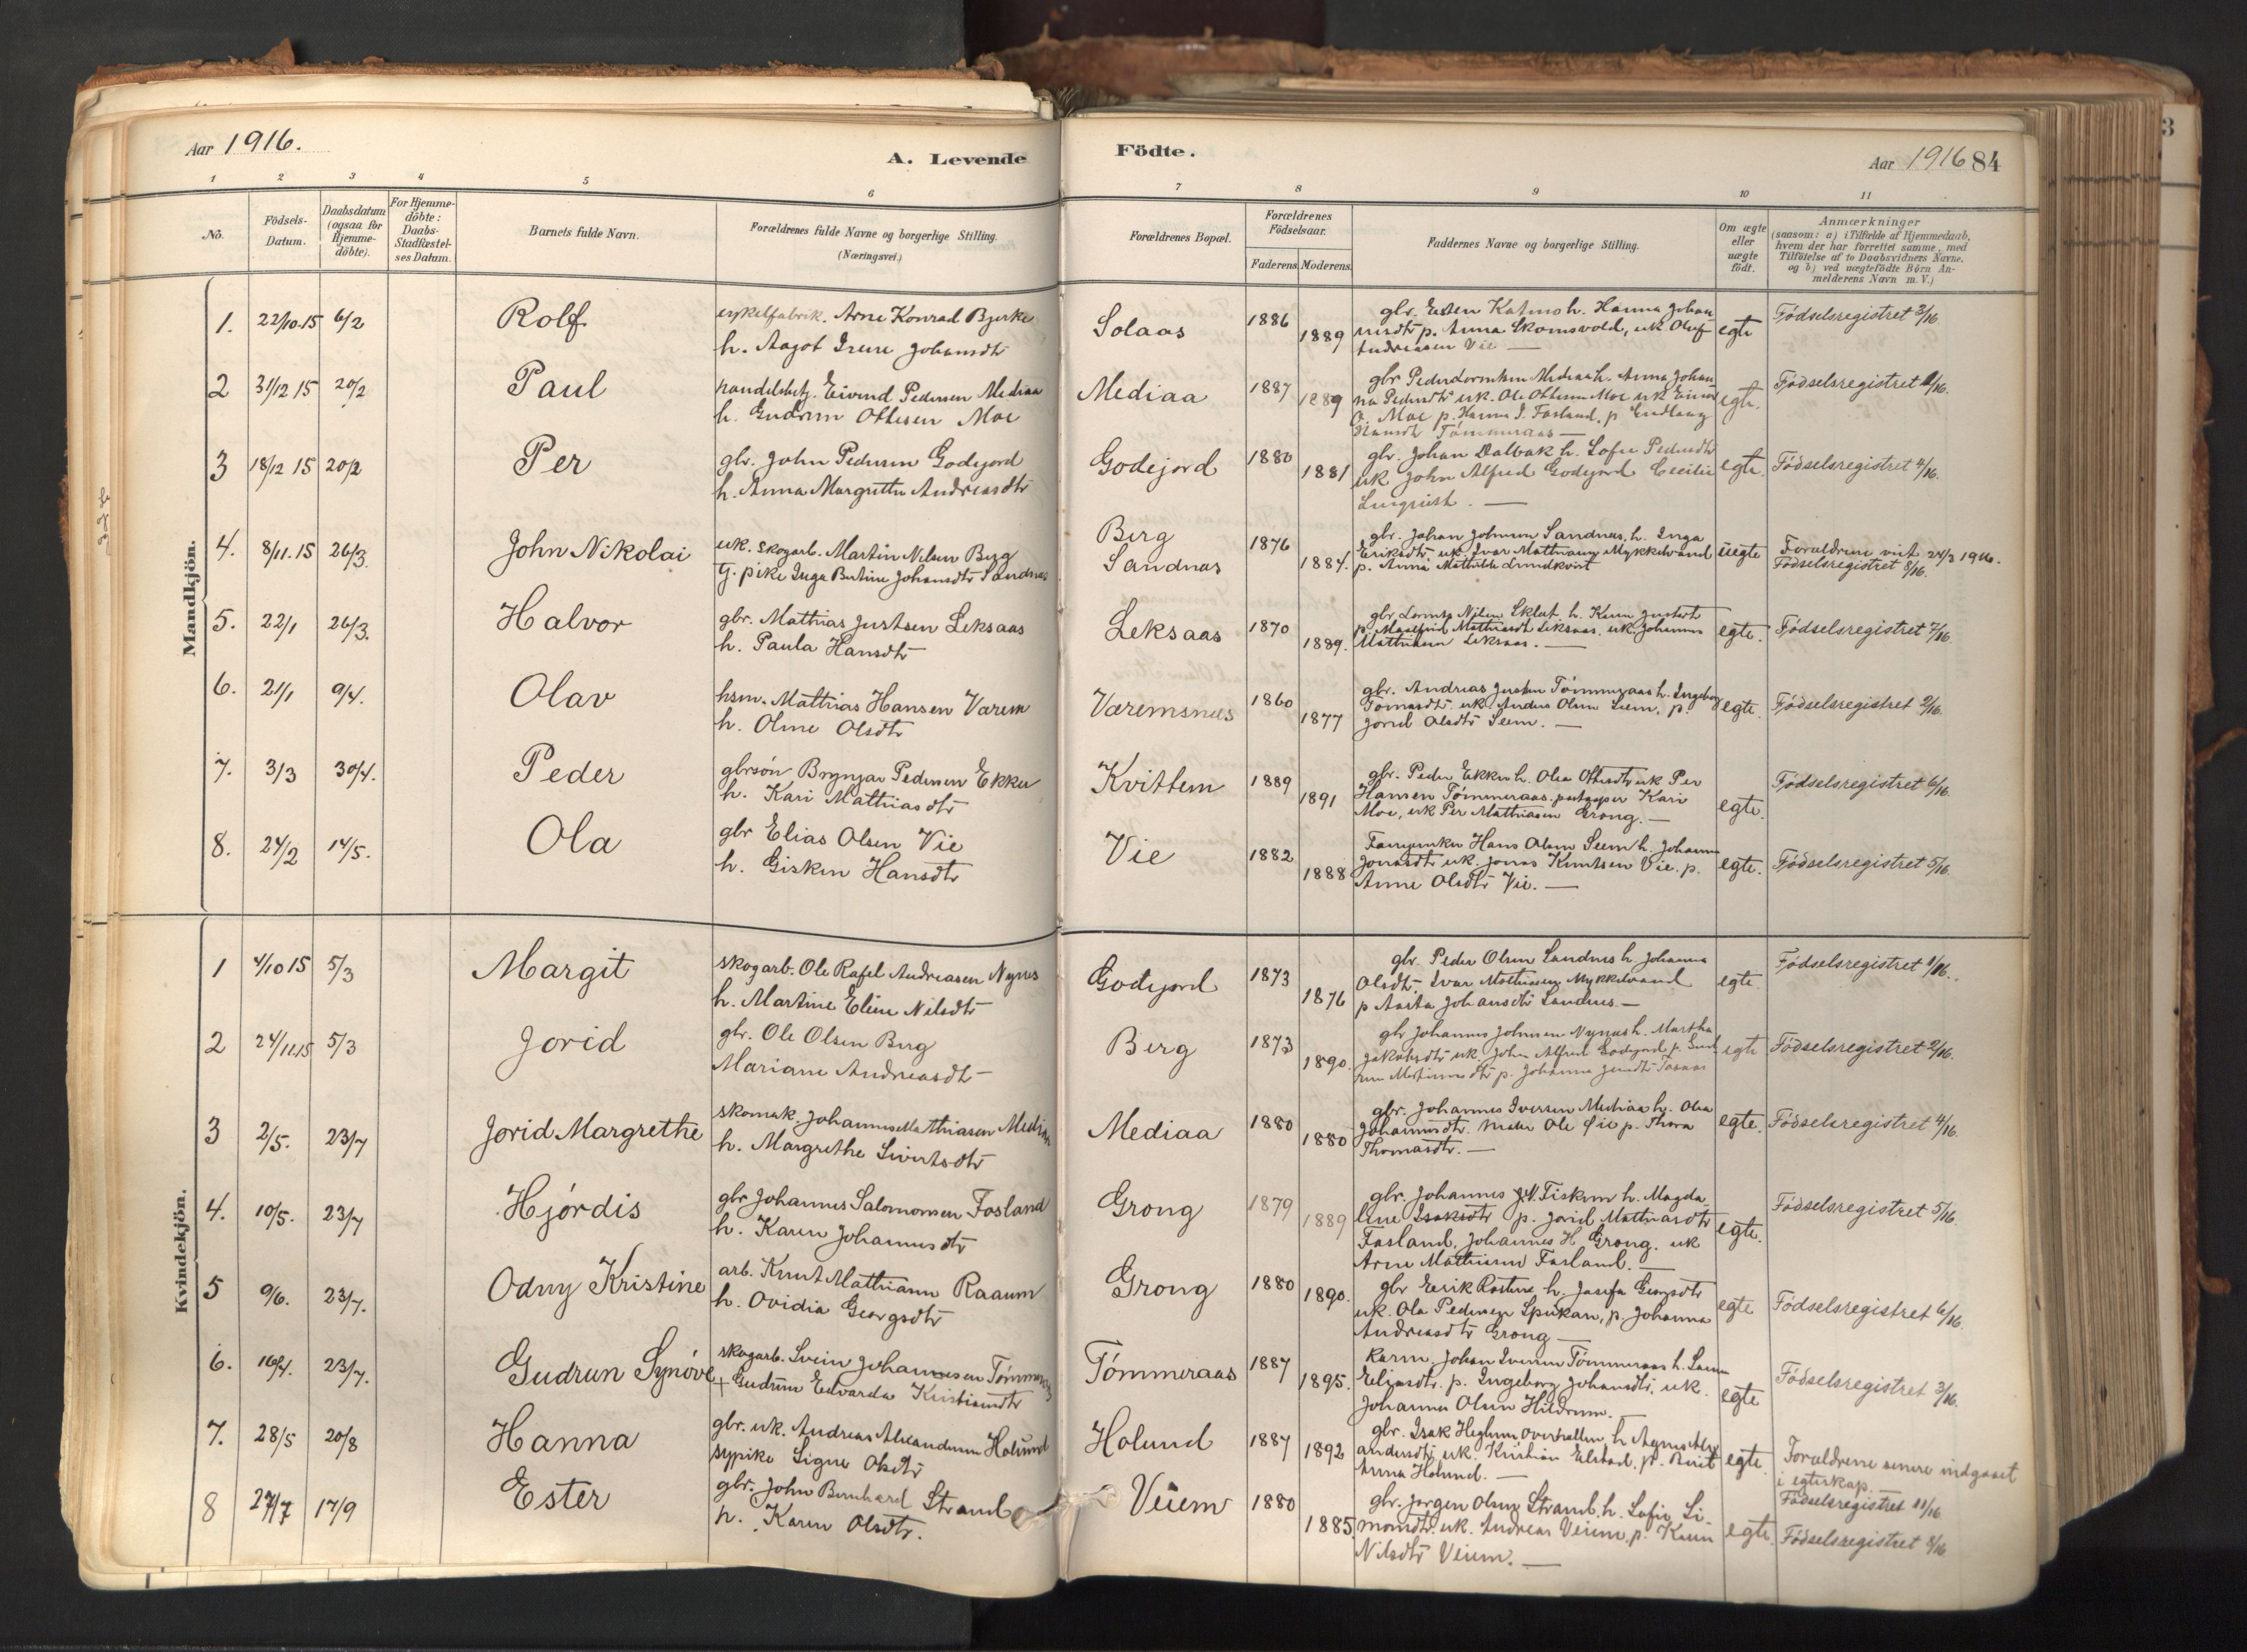 Aar 1916.
A. Levende
Födte.
Aar 1916 84
1 2 3 4 5 6 7 8 9 10 11
No.
Födsels-
Datum.
Daabsdatum
(ogsaa for
Hjemme-
döbte).
For Hjemme-
döbte:
Daabs-
Stadfæstel-
ses Datum.
Barnets fulde Navn.
Forældrenes fulde Navne og borgerlige Stilling.
(Næringsvei.)
Forældrenes Bopæl.
Forældrenes
Födselsaar.
Faderens. Moderens.
Faddernes Navne og borgerlige Stilling.
Om ægte
eller
uægte
födt.
Anmærkninger
(saasom: a) i Tilfælde af Hjemmedaab,
hvem der har forrettet samme, med
Tilföielse af to Daabsvidners Navne,
og b) ved uægtefödte Börn An-
melderens Navn m. V.)
Mandkjön.
1. 22/10.15 6/2 Rolf
cykelfabrik. Arne Konrad Bjerke
h. Aagot Irene Johansdtr
Solaas 1886 1889
gbr. Esten Katmo h. Hanna Johan
nesdtr p. Anna Skomsvold, uk Oluf
Andreasen Vie —
egte
Födselsregistret 3/16.
2 31/12 15 20/2 Paul
handelsbetj. Eivind Pedersen Mediaa
h. Gudrun Ottesen Moe
Mediaa 1887 1889
gbr Peder Lorentsen Mediaa h. Anna Johan
na Pedersdtr uk. Ole Ottesen Moe uk Einar
O. Moe p. Hanna J. Fosland. p Gudlaug
Hansdtr Tömmeraas —
egte.
Födselsregistret 1/16.
3 18/12 15 20/2 Per
gbr. John Pedersen Godejord
h. Anna Margrethe Andreasdtr
Godejord 1880 1881
gbr. Johan Dalbak h. Sofie Pedersdtr
uk John Alfred Godejord Cecilie
egte.
Födselsregistret 4/16.
4. 8/11.15 26/3. John Nikolai
uk. skogarb. Martin Nilsen Berg
g. pike Inga Bertine Johansdtr Sandnes
Berg
Sandnæs 1876 1884.
gbr. Johan Johnsen Sandnes, h. Inga
Eriksdtr uk. Ivar Mathiasen Mykkelvand
p. Anna Mathilde Lundkvist
uegte
Forældrene viet 24/3 1916.
Födselsregistret 8/16.
5. 22/1 26/3. Halvor
gbr. Mathias Justsen Leksaas
h. Paula Hansdtr
Leksaas 1870 1889.
gbr Lorents Nilsen Eklof h. Karen Justsdtr
p. Magnhild Mathiasdtr Leksaas, uk. Johannes
Mathiasen Leksaas. —
egte.
Födselsregistret 7/16.
6. 21/1 9/4. Olav
hsm. Mathias Hansen Varem
h. Oline Olsdtr
Væremsnes 1860 1877
gbr. Andreas Justsen Tömmeraas h. Ingeborg
Tomasdtr uk Anders Olsen Seem, p.
Jorid Olsdtr Seem. —
egte.
Födselsregistret 2/16.
7. 3/3 30/4. Peder
gbrsön Brynjar Pedersen Ekker
h. Kari Mathiasdtr
Kvittem 1889 1891
gbr. Peder Ekker h. Olea Ottesdtr uk Per
Hansen Tömmeraas. Kari
Moe, uk Per Mathiasen Grong. —
egte.
Födselsregistret 6/16.
8. 24/2 14/5. Ola
gbr Elias Olsen Vie
h. Gisken Hansdtr
Vie 1882 1888
Hans Olsen Seem h. Johanna
Jonasdtr uk. Jonas Knutsen Vie. p.
Anne Olsdtr Vie. —
egte.
Födselsregistret 5/16.
Kvindekjön.
1 4/10 15 5/3 Margit
skogarb. Ole Rafel Andreasen Nynes
h. Martine Eline Nilsdtr
Godejord 1873 1876
gbr. Peder Olsen Sandnes h. Johanna
Olsdtr. Ivar Mathiasen Mykkelvand
p Aasta Johansdtr Sandnes. —
egte.
Födselsregistret 1/16.
2 24/11.15 5/3 Jorid
gbr. Ole Olsen Berg
Mariane Andreasdtr
Berg 1873 1890.
gbr Johannes Johnsen Nynes h. Martha
Jakobsdtr uk. John Alfred Godejord p.
p. Johanna
egte
Födselsregistret 2/16.
3 2/5. 23/7 Jorid Margrethe
skomak. Johannes Mathiasen Mediaa
h. Margrethe Sivertsdtr
Mediaa 1880 1880
gbr. Johannes Iversen Mediaa h. Olea
Johannesdtr. Ole p. Thora
Thomasdtr. —
egte.
Födselsregistret 4/16.
4. 10/5. 23/7 Hjördis
gbr Johannes Salomonsen Fosland
h. Karen Johannesdtr
Grong 1879 1889
gbr. Johannes Fiskum h. Magda
lene Isaksdtr p. Jorid Mathiasdtr
Fosland. Johannes H Grong. uk
Arne Mathiasen Fosland. —
egte.
Födselsregistret 5/16.
5 9/6. 23/7. Odny Kristine
arb. Knut Mathiasen Raaum
h. Ovidia Georgsdtr
Grong 1880 1890.
gbr Eerik Rosten h. Josefa Georgsdtr
uk. Ola Pedersen p. Johanna
Andreasdtr Grong —
egte
Födselsregistret 6/16.
6. 16/4. 23/7. Gudrun Synöve
skogarb. Svein Johannesen Tömmeraas
+ Gudrun Edvarda Kristiansdtr
Tömmeraas 1887 1895.
Johan Iversen Tömmeraas h.
Eliasdtr. p. Ingeborg Johansdtr, uk.
Johannes Olsen Hildrum. —
egte
Födselsregistret 3/16.
7. 28/5 20/8 Hanna
gbr. uk. Andreas Alexandersen Holund
sypike Signe Olsdtr
Holund 1887 1892
gbr. Isak Heglum Overhallen, h Agnes Alex
andersdtr, uk. Kristian Elstad, p. Berit
Anna Holund. —
egte.
Forældrene senere indgaaet
i egteskap. —
Födselsregistret 11/16
8 27/7 17/9 Ester
gbr. John Bernhard Strand
h. Karen Olsdtr.
Veiem 1880 1885
gbr. Jörgen Olsen Strand. h. Sofie Si-
monsdtr. uk. Andreas Veiem, p. Karen
Nilsdtr Veiem. —
egte.
Födselsregistret 8/16